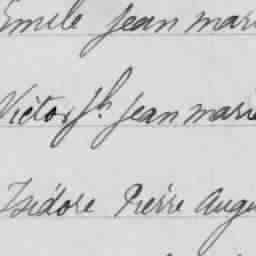 Emile Jean mari
Victor Jh Jean marie
Isidore Pierre Augu